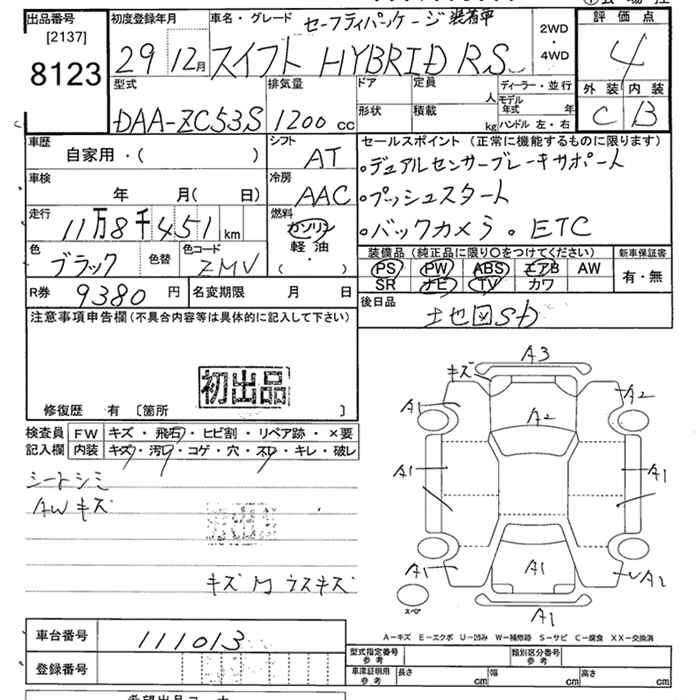 出品番号
[2137]
8123
初度登録年月
29 12月
車名・グレード
セーフティパッケージ装着車
スイフト HYBRID RS
2WD
・
4WD
評価点
4
外装 内装
C B
型式
DAA-ZC53S
排気量
1200 cc
ドア
形状
定員
人
積載
kg
ディーラー・並行
モデル年式 年
ハンドル 左・右
車歴
自家用・( )
シフト
AT
車検
年 月( 日)
冷房
AAC
走行
11万8千451 km
燃料
ガソリン
軽油
( )
色
ブラック
色替
色コード
ZMV
R券 9380 円
名変期限 月 日
セールスポイント(正常に機能するものに限ります)
・デュアルセンサーブレーキサポート
・プッシュスタート
・バックカメラ ・ETC
装備品(純正品に限り○をつけてください)
PS PW ABS エアB AW
SR ナビ TV カワ
新車保証書
有・無
後日品
地図SD
注意事項申告欄(不具合内容等は具体的に記入して下さい)
初出品
修復歴 有 〔箇所 〕
検査員記入欄
FW キズ・飛石・ヒビ割・リペア跡・×要
内装 キズ・汚レ・コゲ・穴・スレ・キレ・破レ
シートシミ
AWキズ
キズ
A3
キズ
A1
A2
A2
A1
A1
A1
A1
A2
スペア
A1
A-キズ E-エクボ U-凹み W-補修跡 S-サビ C-腐食 XX-交換済
車台番号
111013
登録番号
型式指定番号
参考
類別区分番号
参考
車庫証明用
参考
長さ cm
幅 cm
高さ cm